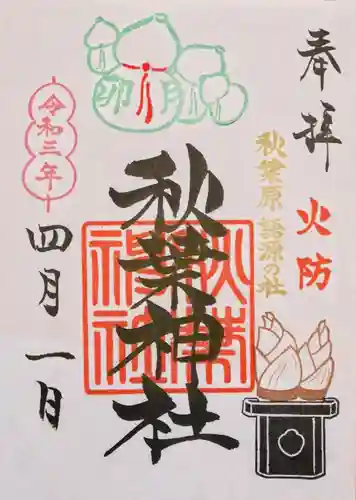 奉拝
火防
秋葉原 語源の社
秋葉神社
秋葉
神社
卯月
令和三年
四月一日